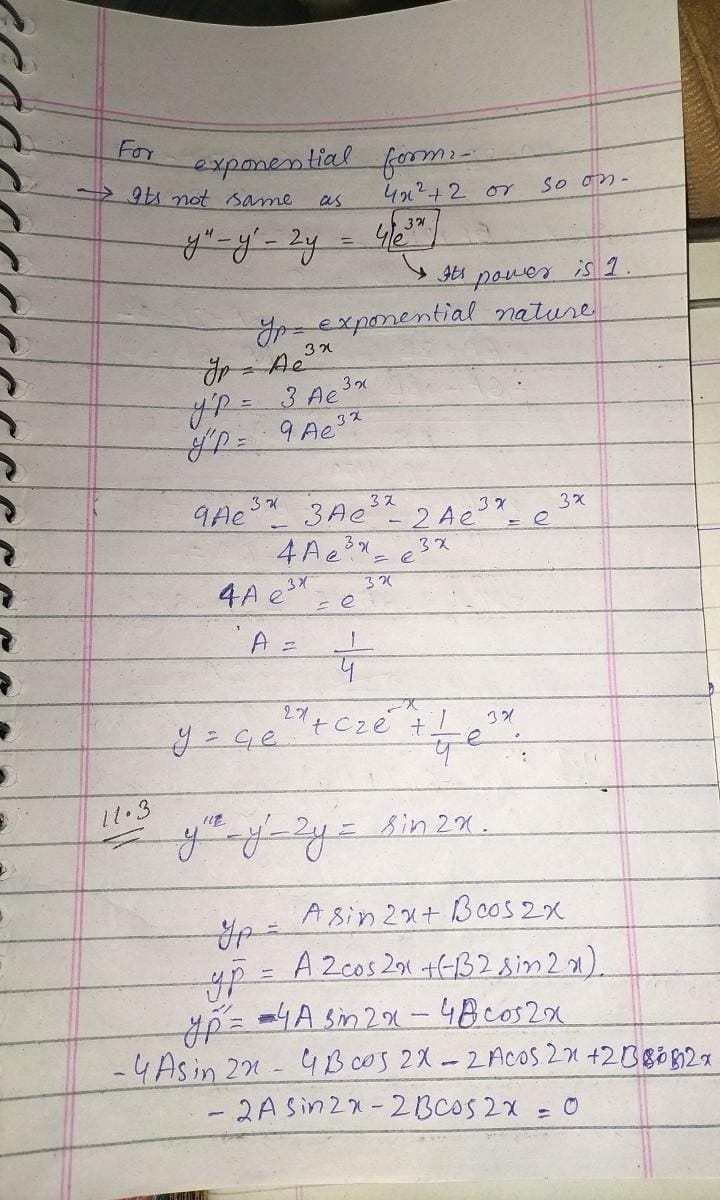 For exponential form:-
→ Its not same as 4x²+2 or so on-
y" - y' - 2y = 4e³ˣ
↳ Its power is 1.
yp = exponential nature
yp = Ae³ˣ
y'p = 3Ae³ˣ
y"p = 9Ae³ˣ
9Ae³ˣ - 3Ae³ˣ - 2Ae³ˣ = e³ˣ
4Ae³ˣ = e³ˣ
4Ae³ˣ = e³ˣ
A = 1/4
y = c₁e²ˣ + c2e⁻ˣ + 1/4 e³ˣ.
11.3 y" - y' - 2y = sin2x.
yp = Asin2x + Bcos2x
yp' = A2cos2x + (-B2sin2x).
yp" = -4Asin2x - 4Bcos2x
-4Asin2x - 4Bcos2x - 2Acos2x + 2Bsin2x
- 2Asin2x - 2Bcos2x = 0